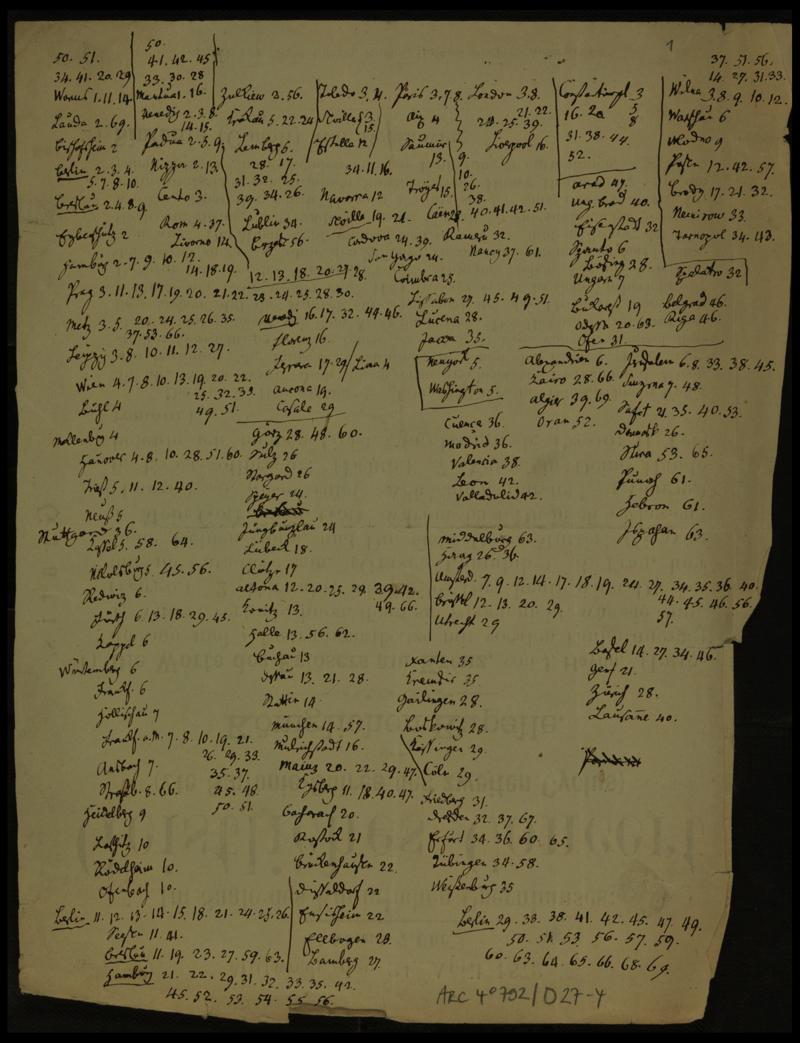 1
50. 51.
34. 41. 20. 29
Worms 1. 11. 14
Lauda 2. 69.
Bischofsheim 2
Berlin 2. 3. 4.
5. 7. 8. 10.
Breslau 2. 4. 8. 9
Hamburg 2. 7. 9. 10. 12.
14. 18. 19.
Prag 3. 11. 13. 17. 19. 20. 21. 22. 23. 24. 25. 28. 30.
Metz 3. 5. 20. 24. 25. 26. 35.
37. 53. 66.
Leipzig 3. 8. 10. 11. 12. 27.
Wien 4. 7. 8. 10. 13. 19. 20. 22.
25. 32. 39.
49. 51.
Bühl 4
Hanover 4. 8. 10. 28. 51. 60.
Triest 5. 11. 12. 40.
Neuß 5
Stuttgard 36.
Cassel 5. 58. 64.
Nikolsburg 5. 45. 56.
Redwitz 6.
Fürth 6. 13. 18. 29. 45.
Koppel 6
Würtemberg 6
Frankf. 6
Frankf. a.M. 7. 8. 10. 19. 21.
26. 29. 33.
35. 37.
45. 48.
50. 51.
Ansbach 7.
Straßb. 8. 66.
Heidelberg 9
Rödelheim 10.
Offenbach 10.
Berlin 11. 12. 13. 14. 15. 18. 21. 24. 25. 26.
Seesen 11. 41.
Breslau 11. 19. 23. 27. 59. 63.
Hamburg 21. 22. 29. 31. 32. 33. 35. 42.
45. 52. 53. 54. 55. 56.
50.
41. 42. 45
33. 30. 28
Mantua 1. 16.
Venedig 2. 3. 8.
14. 15.
Padua 2. 5. 9.
Nizza 2. 13.
Cento 3.
Rom 4. 37.
Livorno 14.
Zulkiew 2. 56.
Krakau 5. 22. 24
Lemberg 5.
28. 17.
31. 32. 25.
39. 34. 26.
Lublin 34.
12. 13. 18. 20. 27. 28.
Venedig 16. 17. 32. 44. 46.
Florenz 16.
Ferrara 17. 29
Ancona 19.
Casale 29
Görz 28. 48. 60.
Sulz 26
Stargard 26
Speyer 24.
Jungbunzlau 24
Lübeck 18.
Altona 12. 20. 25. 29. 39. 42.
49. 66.
Konitz 13.
Halle 13. 56. 62.
Buchau 13
Dessau 13. 21. 28.
Stettin 14
München 14. 57.
Mainz 20. 22. 29. 47.
Kgsberg 11. 18. 40. 47.
Rostock 21
Düsseldorf 22
Ensisheim 22
Ellbogen 28.
Bamberg 27.
Toledo 3. 21.
Estella 12
34. 11. 16.
Navarra 12
Sevilla 19. 21.
Cordova 24. 39.
San Yago 24.
Coimbra 25.
Lissabon 27. 45. 49. 51.
Lucena 28.
Jaca 35.
Newyork 5.
Washington 5.
Cuenca 36.
Madrid 36.
Valencia 38.
Leon 42.
Valladolid 42.
Paris 3. 7. 8.
Aix 4
Saumur
13.
Troyes 15.
London 3. 8.
21. 22.
24. 25. 39.
Liverpool 16.
9.
10.
26.
38.
40. 41. 42. 51.
Rameru 32.
Nancy 37. 61.
Middelburg 63.
Haag 25. 36.
Amsterd. 7. 9. 12. 14. 17. 18. 19. 24. 27. 34. 35. 36. 40.
44. 45. 46. 56.
57.
Bristol 12. 13. 20. 29.
Utrecht 29
Xanten 35
Gailingen 28.
Boskowitz 28.
Kissingen 29.
Cöln 29.
Friedberg 31.
Dresden 32. 37. 67.
Erfurt 34. 36. 60. 65.
Tübingen 34. 58.
Weißenburg 35
Berlin 29. 33. 38. 41. 42. 45. 47. 49.
50. 51. 53. 56. 57. 59.
60. 63. 64. 65. 66. 68. 69.
Constantinopl. 3
5
8
16. 20
31. 38. 44.
52.
Arad 47.
Eisenstadt 32
Ungarn 7
Bukarest 19
Odessa 20. 63.
Ofen 31
Alexandrien 6.
Kairo 28. 66.
Algier 39. 69.
Oran 52.
37. 51. 56.
14. 27. 31. 33.
Wilna 3. 8. 9. 10. 12.
Warschau 6
Wlodno 9
Posen 12. 42. 57.
Brody 17. 21. 32.
Nemirow 33.
Tarnopol 34. 43.
Spalatro 32
Belgrad 46.
Riga 46.
Jerusalem 6. 8. 33. 38. 45.
Smyrna 7. 48.
Safet 21. 35. 40. 53.
Damask 26.
Punah 61.
Hebron 61.
Ispahan 63.
Basel 14. 27. 34. 46.
Genf 21.
Zürich 28.
Lausanne 40.
ARC 4° 792/D27-4